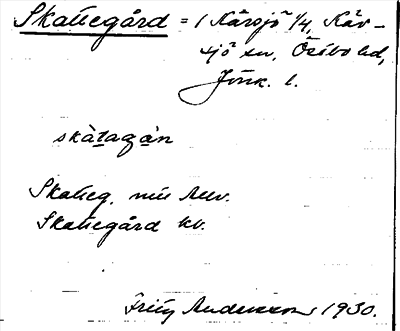 Skattegård = 1 Kärsjö 1/4, Käv-
sjö sn, Östbo hd,
Jönk. l.
skàtagàn
Skatteg. min
Skattegård kv.
Fritz Andersson 1930.